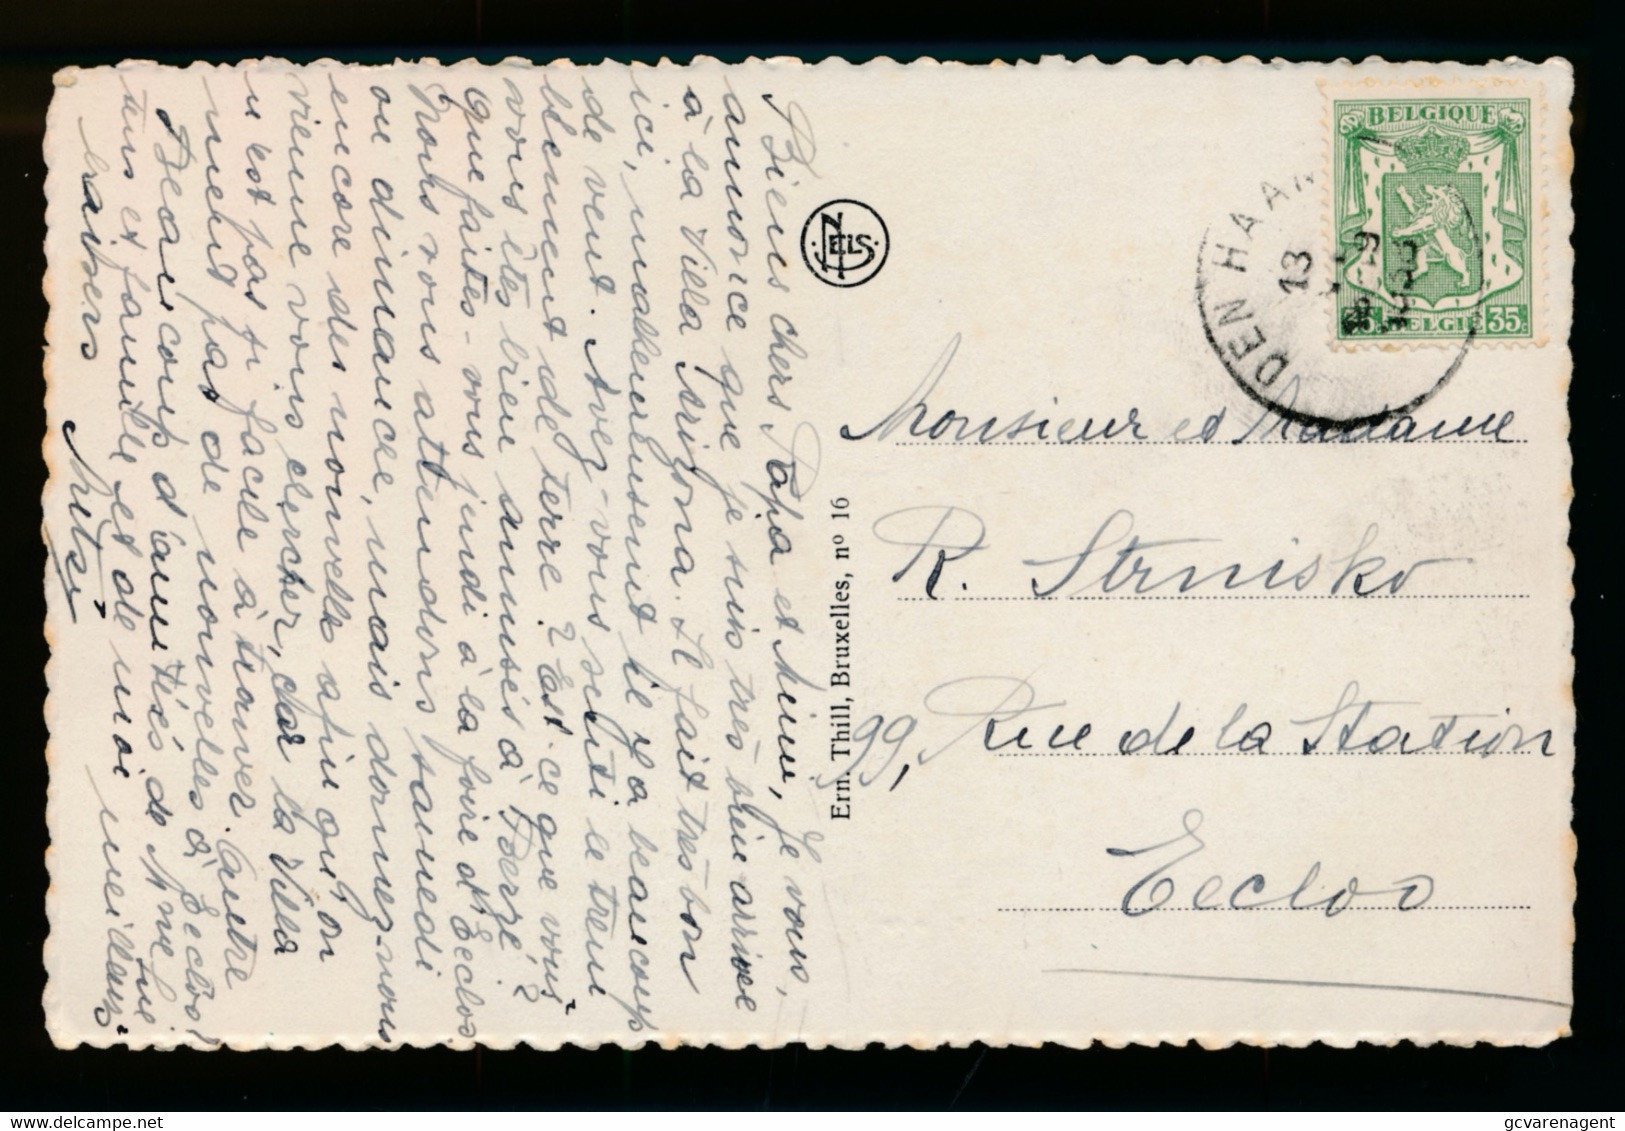 Biens chers Papa et Mimi, Je vous,
annonce que je suis très bien arrivée
à la Villa Arizona. Il fait très bon
ici, malheureusement il y a beaucoup
de vent. Avez-vous senti le trem
blement de terre? Est-ce que vous
vous êtes bien amusés à
Que faites-vous jeudi à la foire d'Eecloo
Nous vous attendons samedi
ou dimanche, mais donnez-nous
encore des nouvelles afin qu'on
vienne vous chercher, car la Villa
n'est pas si facile à trouver. Autre
ment pas de nouvelles d'Eecloo!
Beaucoup d'amitiés de Mme
tens et famille et de moi meilleurs
baisers
Mitzi
NELS
Ern. Thill, Bruxelles, nº 16
BELGIQUE
BELGIË 35c
DEN HAAN
13
Monsieur et Madame
R. Strnisko
99, Rue de la Station
Eecloo
© gcvarenagent